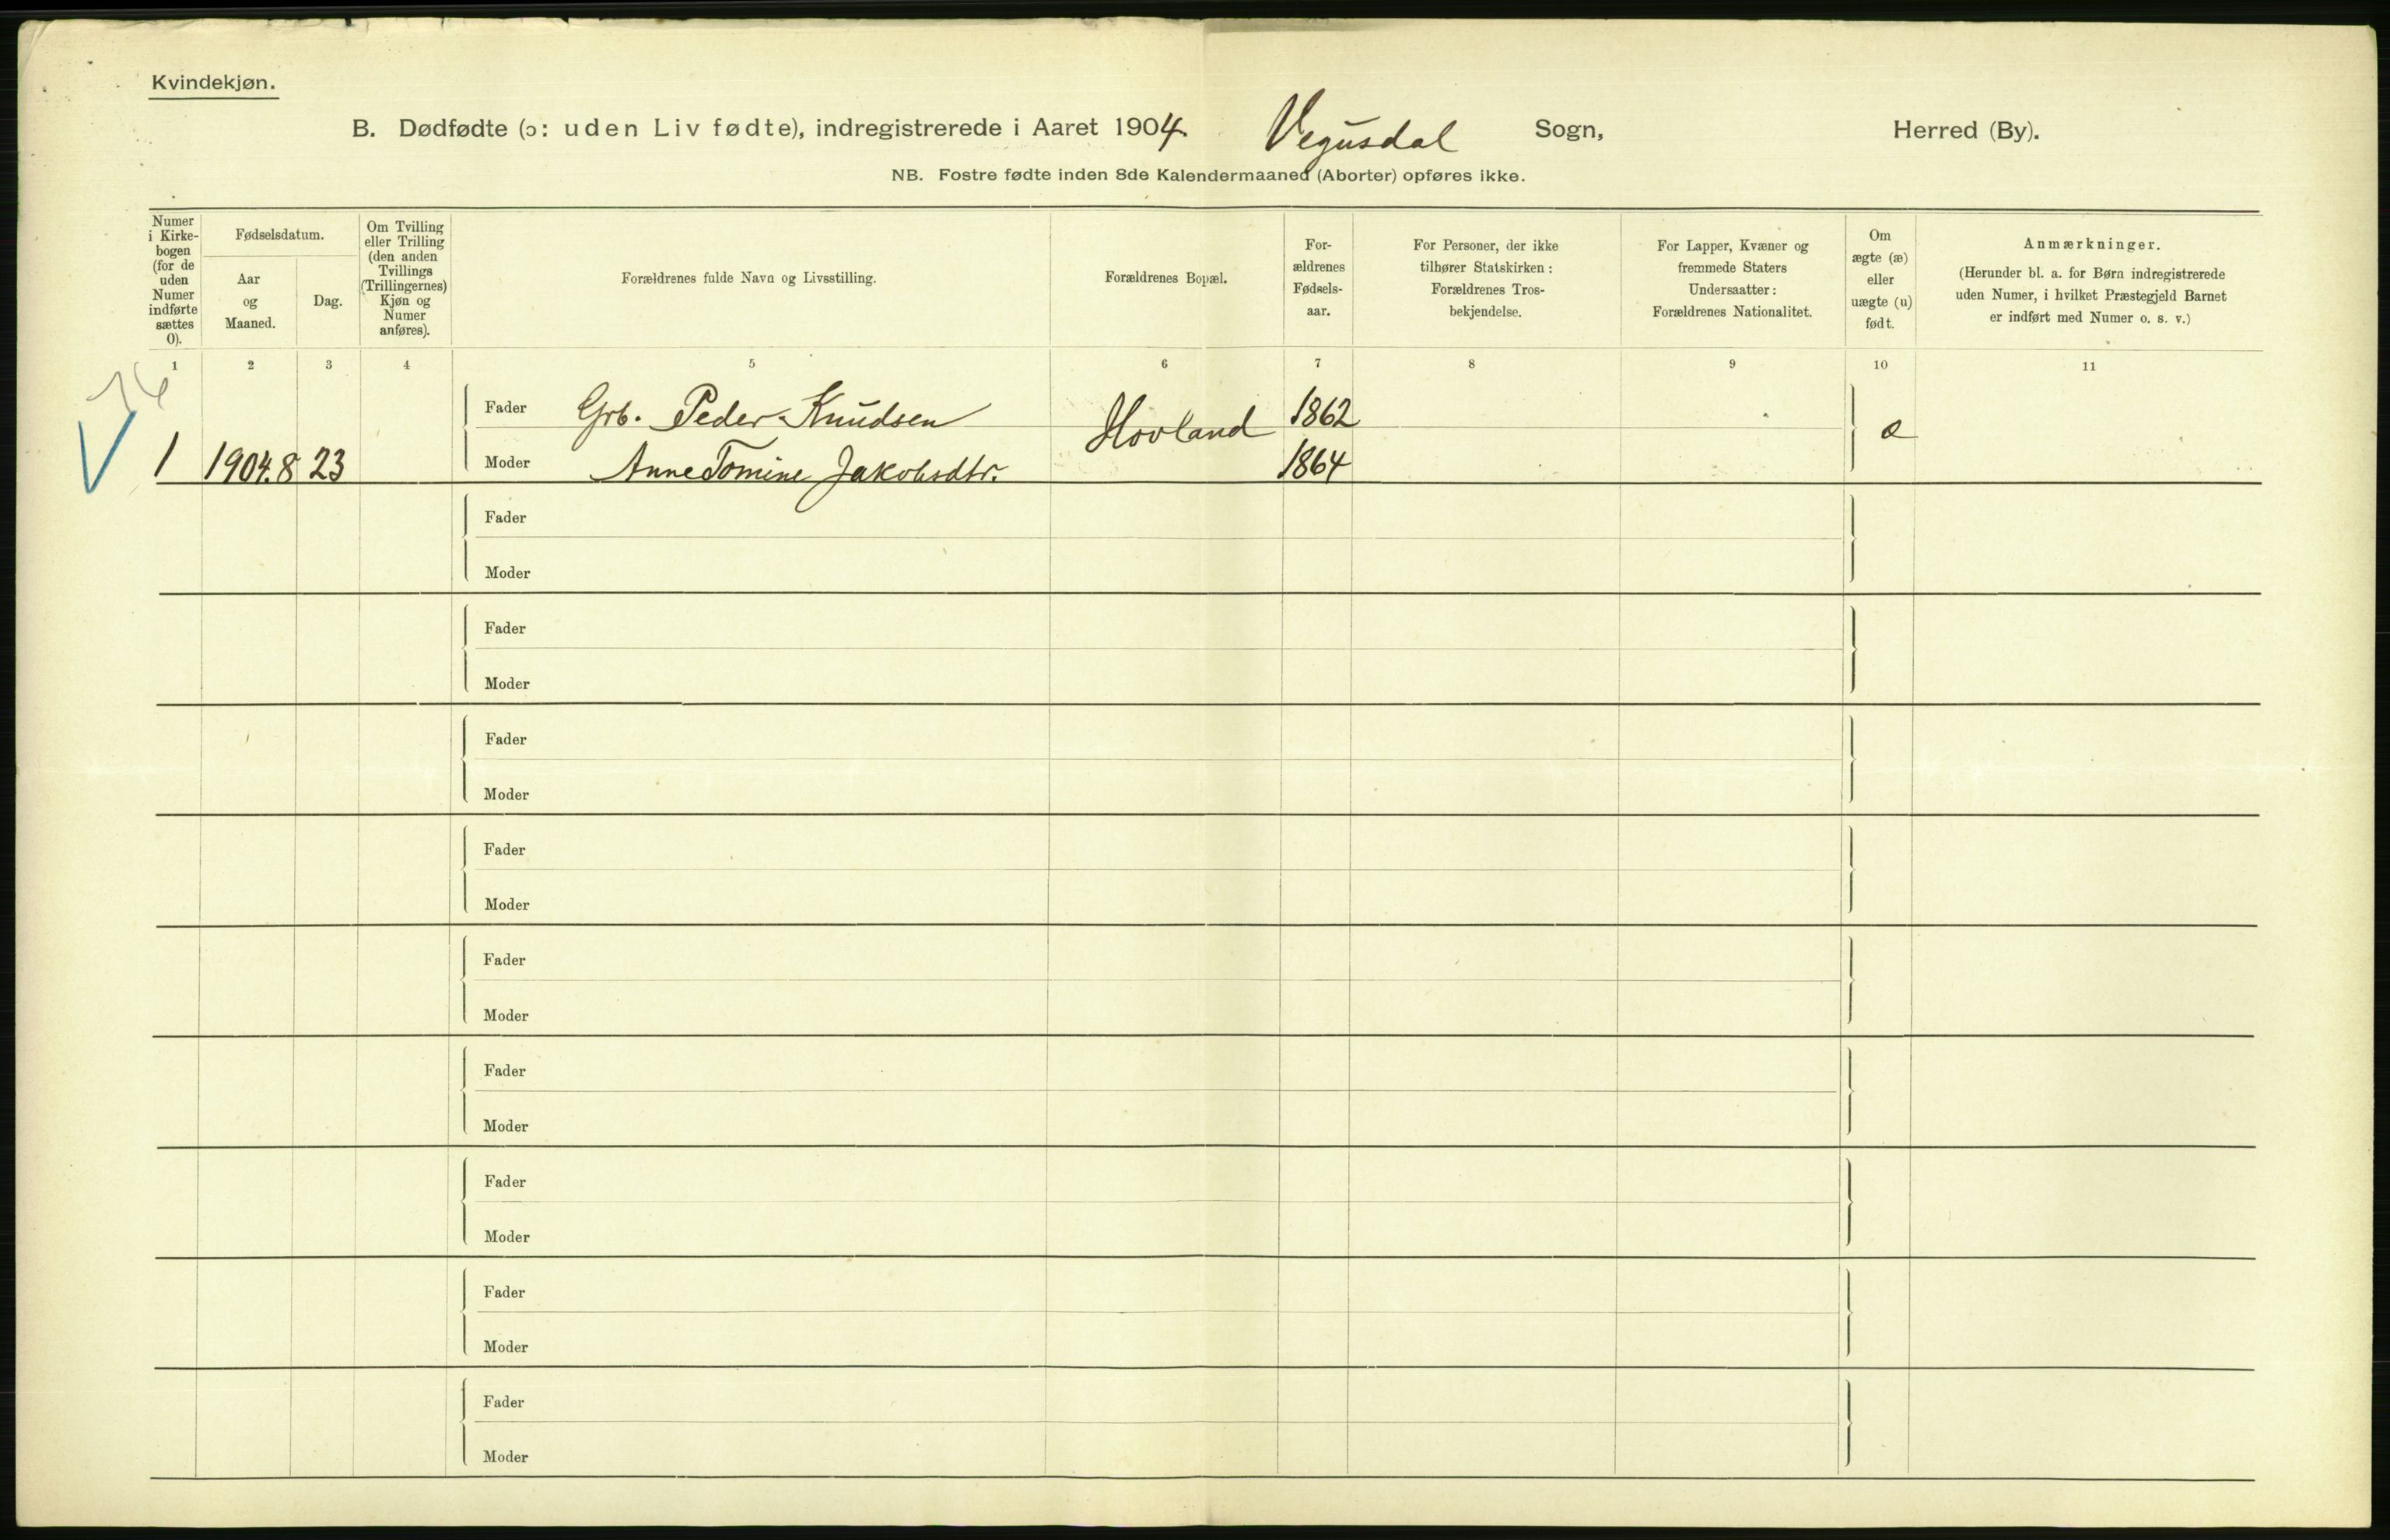 Kvindekjøn.
B. Dødfødte (ɔ: uden Liv fødte), indregistrerede i Aaret 1904. Vegusdal Sogn, Herred (By).
NB. Fostre fødte inden 8de Kalendermaaned (Aborter) opføres ikke.
Numer
i Kirke-
bogen
(for de
uden
Numer
indførte
sættes
0).
Fødselsdatum.
Aar
og
Maaned.
Dag.
Om Tvilling
eller Trilling
(den anden
Tvillings
(Trillingernes)
Kjøn og
Numer
anføres).
Forældrenes fulde Navn og Livsstilling.
Forældrenes Bopæl.
For-
ældrenes
Fødsels-
aar.
For Personer, der ikke
tilhører Statskirken:
Forældrenes Tros-
bekjendelse.
For Lapper, Kvæner og
fremmede Staters
Undersaatter:
Forældrenes Nationalitet.
Om
ægte (æ)
eller
uægte (u)
født.
Anmærkninger.
(Herunder bl. a. for Børn indregistrerede
uden Numer, i hvilket Præstegjeld Barnet
er indført med Numer o. s. v.)
1 2 3 4 5 6 7 8 9 10 11
Fader Grb. Peder Knudsen Hovland 1862 æ
1 1904.8 23 Moder Anne Tomine Jakobsdtr. 1864
Fader
Moder
Fader
Moder
Fader
Moder
Fader
Moder
Fader
Moder
Fader
Moder
Fader
Moder
Fader
Moder
Fader
Moder